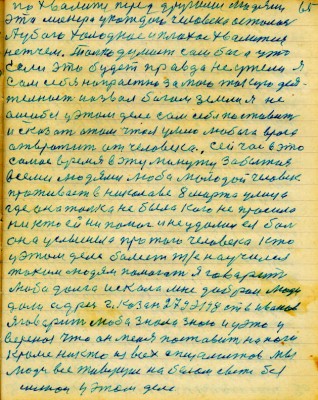 по хвалити перед другими людьми 65
это манера у каждой человека осталас
глубого холодное и плохое хвалится
нечем. Только думает сам бог а уж то
если это будет правда не сумела я
сам себя напрасно за мою такую дея-
тельност назвал богом земли я не
ошибся у этом деле сам себя поставит
и сказат о том что я умею любого врага
отвратит от человека. Сейчас в это
самое время в эту минуту забытая
всеми людями Люба молодой человек
проживает в николаве 8 марта улица
где она только не была кого не просила
никто ей ни помог и не удалил ея бол
она услышала про того человека кто
у этом деле болеет и научился
таким людям помогат я говарит
Люба долга искала мне добрыи люди
дали адрес г. Козан 2793/78 ств Иванов
я говарит Люба знала знаю и уэто у
верена что он меня поставит на ноги
кроме никто из всех специалистов мы
люди все живущие на белом свети без
силнои у этом деле